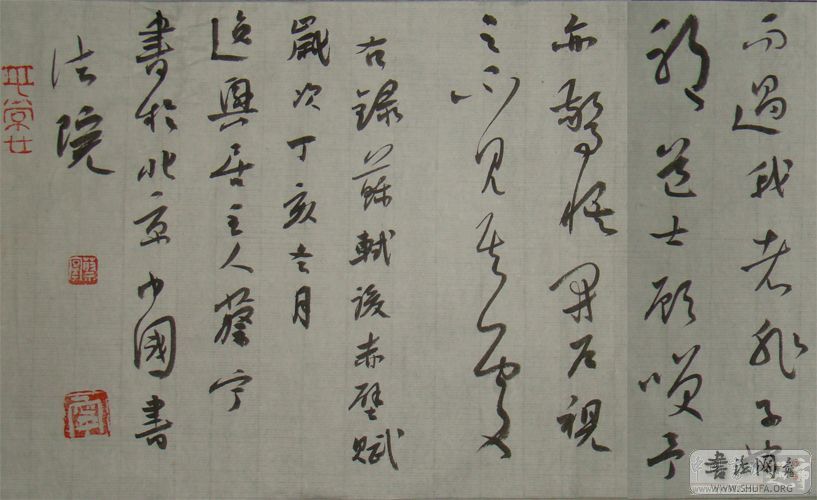 而過我者非子也
耶道士顧笑予
亦驚悟開戶視
之不見其處
右錄蘇軾後赤壁賦
歲次丁亥冬月
逸興居主人蔡宁
書於北京中國書
法院
書法网
WWW.SHUFA.ORG